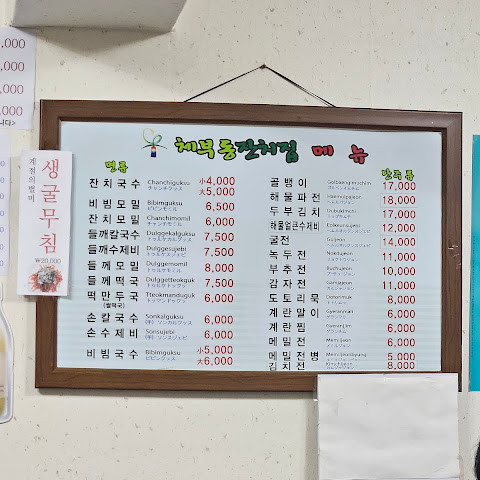 ,000
,000
,000
,000
니다>
계절의 별미
생굴무침
₩20,000
체부동잔치집 메 뉴
면류
잔 치 국 수 Chanchiguksu 小4,000
チャンチグックス 大5,000
비 빔 모 밀 Bibimguksu 6,500
잔 치 모 밀 Chanchimonil 6,000
들깨칼국수 Dulggekalguksu 7,500
들깨수제비 Dulggesujebi 7,500
들 께 모 밀 Dulggemomil 8,000
들 께 떡 국 Dulggetteokguk 7,500
떡 만 두 국 Tteokmanduguk 6,000
(쌀떡국)
손 칼 국 수 Sonkalguksu 6,000
손 수 제 비 Sonsujebi 6,000
비 빔 국 수 Bibimguksu 小5,000
ビビングックス 大6,000
안주류
골 뱅 이 Golbaeng-muchim 17,000
해 물 파 전 Haemulpajeon 18,000
두 부 김 치 Dubukimchi 17,000
해물얼큰수제비 Eolkeunsujebi 12,000
굴전 Guljeon 14,000
녹 두 전 Nokdujeon 11,000
부 추 전 Buchujeon 10,000
감 자 전 Gamjajeon 11,000
도 토 리 묵 Dotorimuk 8,000
계 란 말 이 Gyeranmari 6,000
계 란 찜 Gyeranjjim 6,000
메 밀 전 Memiljeon 6,000
메 밀 전 병 Memiljeonbyung 5,000
김 치 전 Kimchijeon 8,000